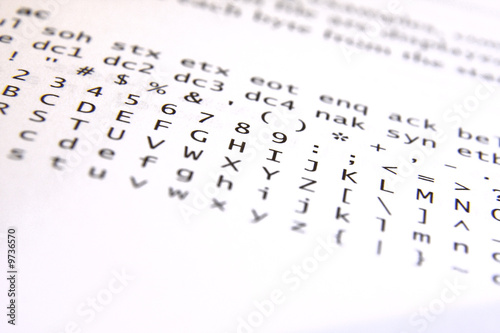 each byte from the
ac
soh stx etx eot enq ack bel
dc1 dc2 dc3 dc4 nak syn etb
! " # $ % & ' ( ) * + , -
2 3 4 5 6 7 8 9 : ; < = >
B C D E F G H I J K L M N
R S T U V W X Y Z [ \ ] ^
c d e f g h i j k l m n o
s t u v w x y z { | } ~
Adobe Stock | #9736570